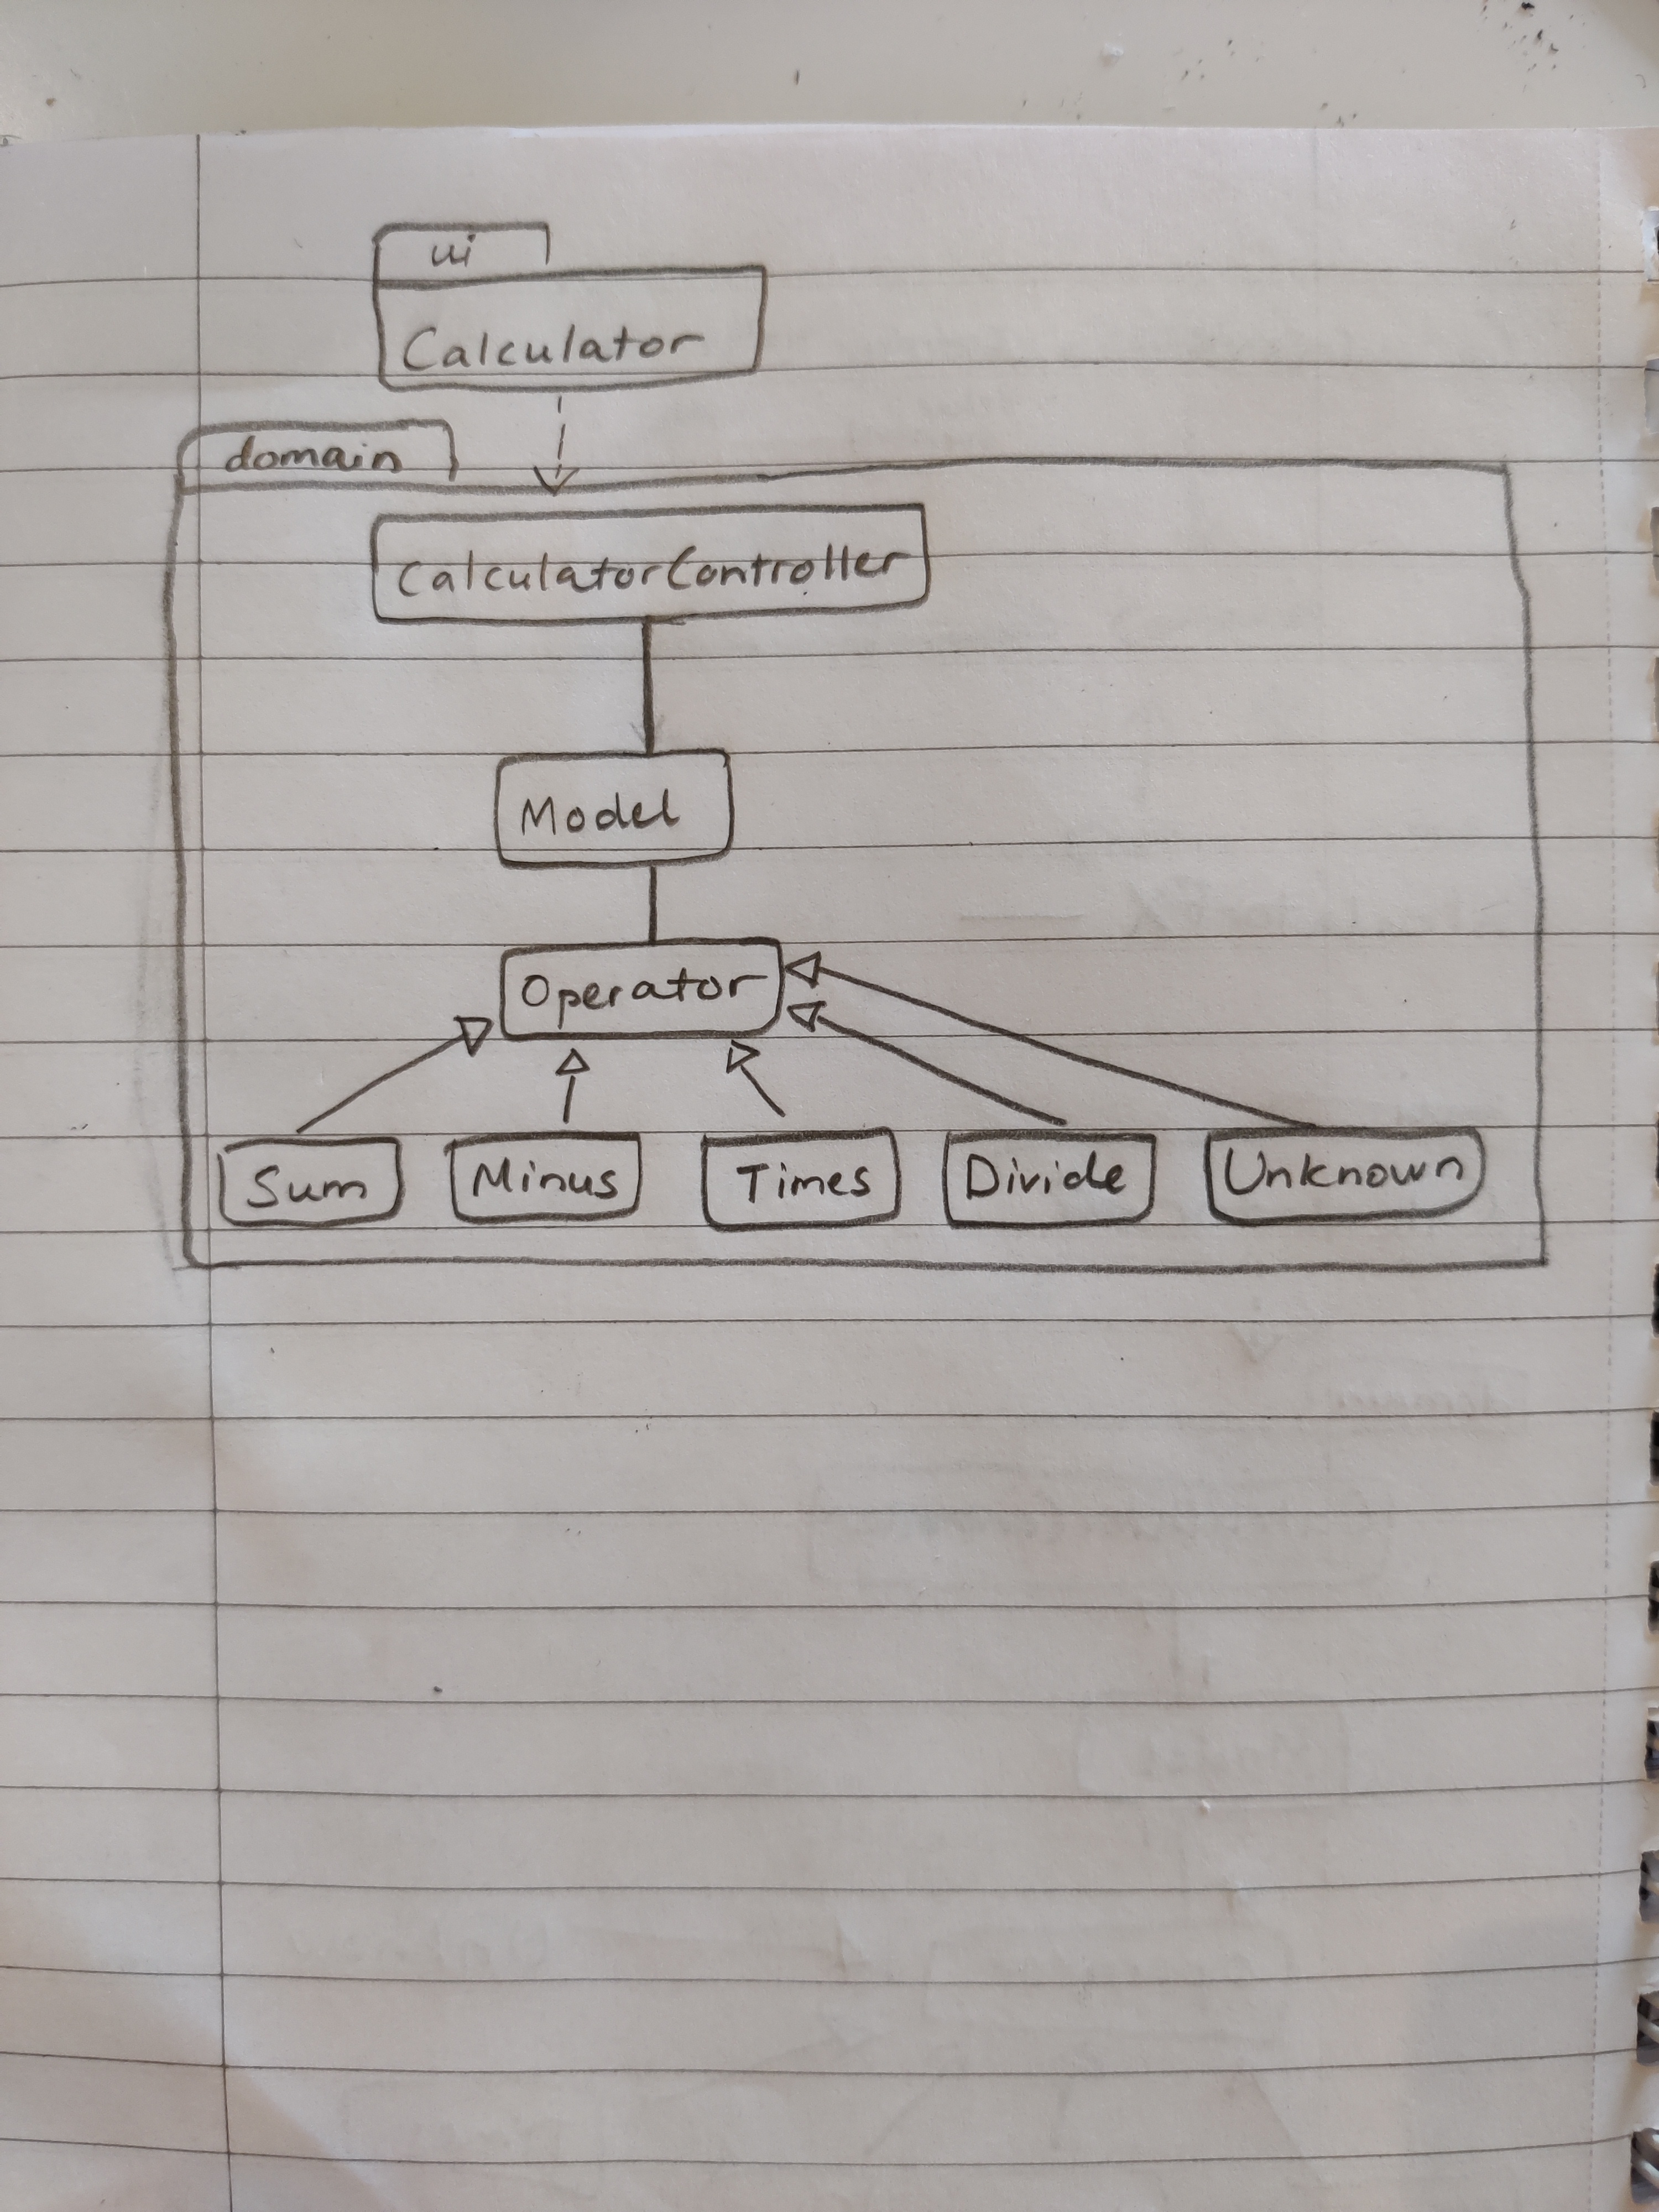 ui
Calculator
domain
CalculatorController
Model
Operator
Sum Minus Times Divide Unknown